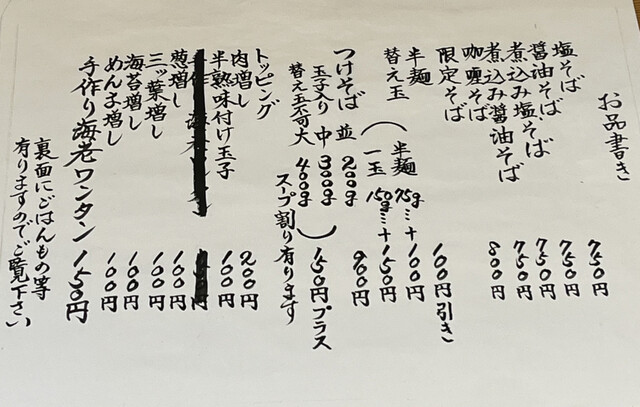 お品書き
塩そば 750円
醤油そば 750円
煮込み塩そば 750円
煮込み醤油そば 750円
咖喱そば 800円
限定そば
半麺 100円引き
替え玉（半麺 75g…＋100円
一玉 150g…＋150円
つけそば 並 200g 900円
玉子入り 中 300g
替え玉可 大 400g）150円プラス
スープ割り有ります
トッピング
肉増し 200円
半熟味付け玉子 100円
葱増し 100円
三ッ葉増し 100円
海苔増し 100円
めん子増し 100円
手作り海老ワンタン 150円
裏面にごはんもの等
有りますのでご覧下さい